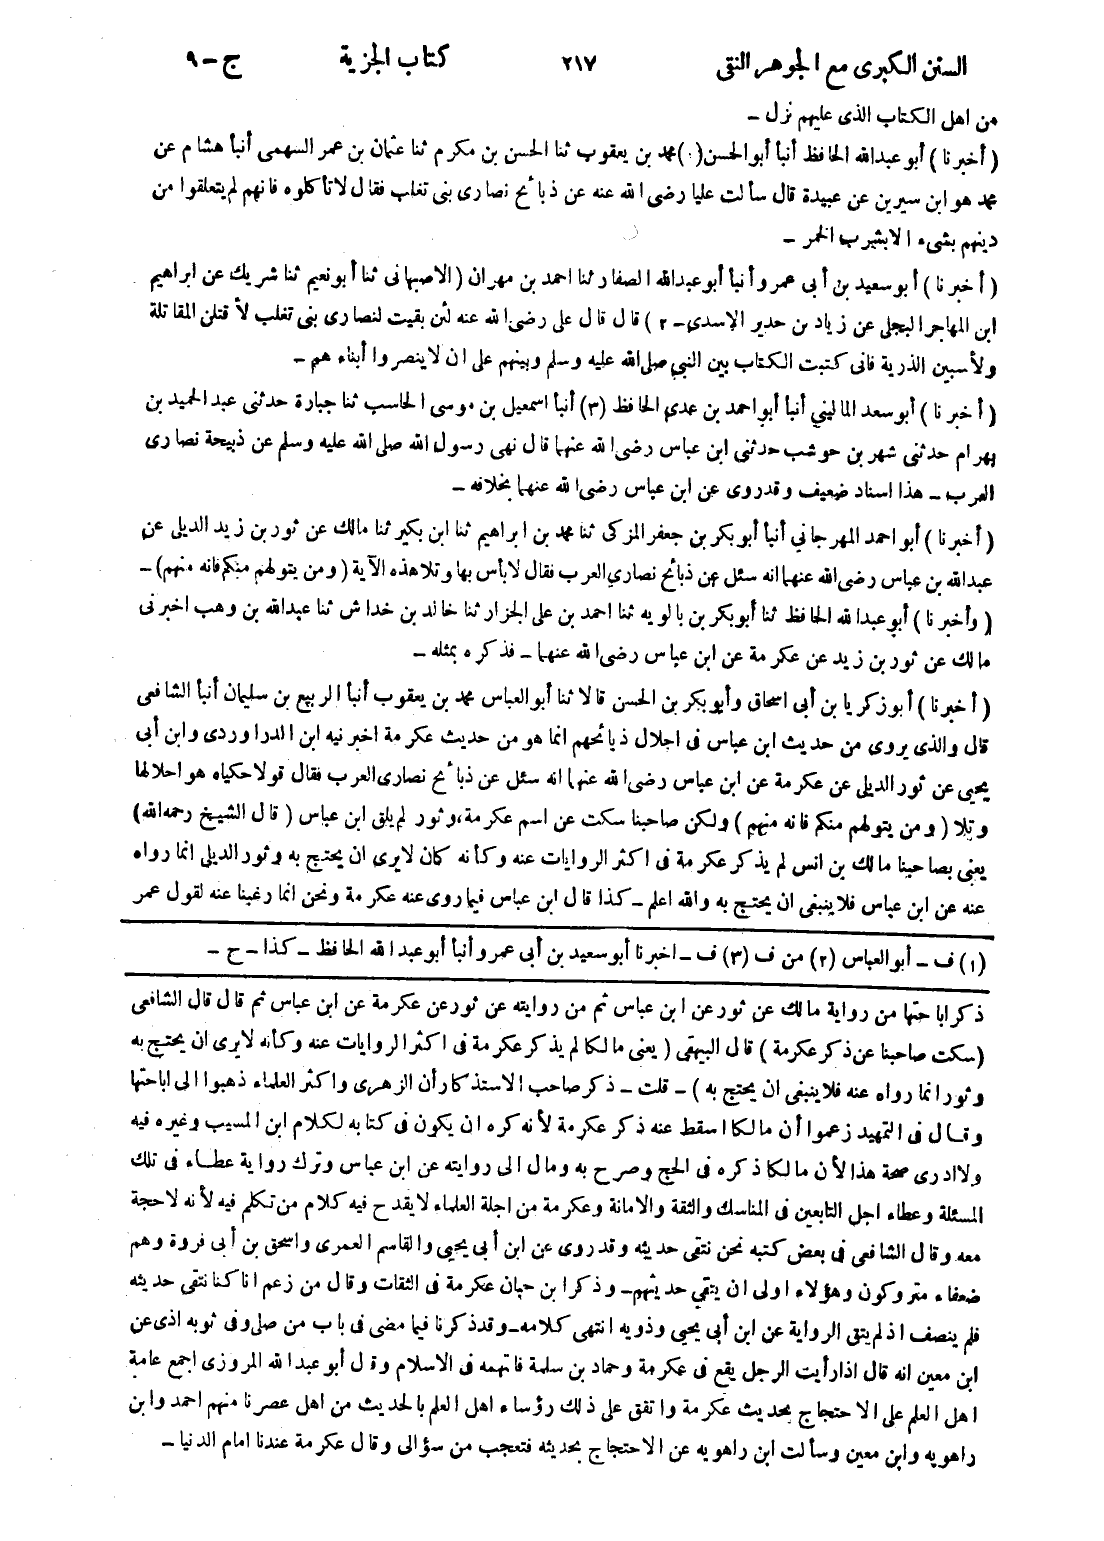 السنن الكبرى مع الجوهر النقى ٢١٧ كتاب الجزية ج-٩
من اهل الكتاب الذى عليهم نزل -
( أخبرنا ) أبو عبدالله الحافظ أنبأ أبوالحسن(١)محمد بن يعقوب ثنا الحسن بن مكرم ثنا عثمان بن عمر السهمى أنبأ هشام عن
محمد هو ابن سيرين عن عبيدة قال سألت عليا رضى الله عنه عن ذبائح نصارى بنى تغلب فقال لا تأكلوه فانهم لم يتعلقوا من
دينهم بشىء الا بشرب الخمر -
( أخبرنا ) أبو سعيد بن أبى عمرو أنبأ أبو عبدالله الصفار ثنا احمد بن مهران ( الاصبهانى ثنا أبو نعيم ثنا شريك عن ابراهيم
ابن المهاجر البجلى عن زياد بن حدير الاسدى - ٢ ) قال قال على رضى الله عنه لئن بقيت لنصارى بنى تغلب لأ قتلن المقاتلة
ولأسبين الذرية فانى كتبت الكتاب بين النبي صلى الله عليه وسلم وبينهم على ان لا ينصروا أبناء هم -
( أخبرنا ) أبو سعد المالينى أنبأ أبو احمد بن عدى الحافظ (٣) أنبأ اسمعيل بن موسى الحاسب ثنا جبارة حدثنى عبد الحميد بن
بهرام حدثنى شهر بن حوشب حدثنى ابن عباس رضى الله عنهما قال نهى رسول الله صلى الله عليه وسلم عن ذبيحة نصارى
العرب - هذا اسناد ضعيف وقدروى عن ابن عباس رضى الله عنهما بخلافه -
( أخبرنا ) أبو احمد المهرجاني أنبأ أبو بكر بن جعفر المزكى ثنا محمد بن ابراهيم ثنا ابن بكير ثنا مالك عن ثور بن زيد الديلى عن
عبدالله بن عباس رضى الله عنهما انه سئل عن ذبائح نصارى العرب فقال لا بأس بها وتلا هذه الآية ( ومن يتولهم منكم فانه منهم) -
( وأخبرنا ) أبو عبدالله الحافظ ثنا أبو بكر بن بالويه ثنا احمد بن على الجزار ثنا خالد بن خداش ثنا عبدالله بن وهب اخبرنى
مالك عن ثور بن زيد عن عكرمة عن ابن عباس رضى الله عنهما - فذكره بمثله -
( أخبرنا ) أبو زكريا بن أبى اسحاق وأبو بكر بن الحسن قالا ثنا أبو العباس محمد بن يعقوب أنبأ الربيع بن سليمان أنبأ الشافعى
قال والذى يروى من حديث ابن عباس فى احلال ذبائحهم انما هو من حديث عكرمة اخبرنيه ابن الدراوردى وابن أبى
يحيى عن ثور الديلى عن عكرمة عن ابن عباس رضى الله عنهما انه سئل عن ذبائح نصارى العرب فقال قولا حكياه هو احلالها
وتلا ( ومن يتولهم منكم فانه منهم ) ولكن صاحبنا سكت عن اسم عكرمة، وثور لم يلق ابن عباس ( قال الشيخ رحمه الله)
يعنى بصاحبنا مالك بن انس لم يذكر عكرمة فى اكثر الروايات عنه وكأنه كان لا يرى ان يحتج به وثور الديلى انما رواه
عنه عن ابن عباس فلا ينبغى ان يحتج به والله اعلم - كذا قال ابن عباس فيما روى عنه عكرمة ونحن انما رغبنا عنه لقول عمر
(١) ف - أبو العباس (٢) من ف (٣) ف - اخبرنا أبو سعيد بن أبى عمرو أنبأ أبو عبدالله الحافظ - كذا - ح -
ذكر اباحتها من رواية مالك عن ثور عن ابن عباس ثم من روايته عن ثور عن عكرمة عن ابن عباس ثم قال قال الشافعى
(سكت صاحبنا عن ذكر عكرمة ) قال البيهقى ( يعنى مالكا لم يذكر عكرمة فى اكثر الروايات عنه وكأنه لا يرى ان يحتج به
وثور انما رواه عنه فلا ينبغى ان يحتج به ) - قلت - ذكر صاحب الاستذكار أن الزهرى واكثر العلماء ذهبوا الى اباحتها
وقال فى التمهيد زعموا أن مالكا اسقط عنه ذكر عكرمة لأنه كره ان يكون فى كتابه لكلام ابن المسيب وغيره فيه
ولا ادرى صحة هذا لأن مالكا ذكره فى الحج وصرح به ومال الى روايته عن ابن عباس وترك رواية عطاء فى تلك
المسئلة وعطاء اجل التابعين فى المناسك والثقة والامانة وعكرمة من اجلة العلماء لا يقدح فيه كلام من تكلم فيه لأنه لا حجة
معه وقال الشافعى فى بعض كتبه نحن نتقى حديثه وقدروى عن ابن أبى يحيى والقاسم العمرى واسحق بن أبى فروة وهم
ضعفاء متروكون وهؤلاء اولى ان يتقى حديثهم - وذكر ابن حبان عكرمة فى الثقات وقال من زعم انا كنا نتقى حديثه
فلم ينصف اذ لم يتق الرواية عن ابن أبى يحيى وذويه انتهى كلامه - وقد ذكرنا فيما مضى فى باب من صلى وفى ثوبه اذى عن
ابن معين انه قال اذا رأيت الرجل يقع فى عكرمة وحماد بن سلمة فاتهمه فى الاسلام وقال أبو عبدالله المروزى اجمع عامة
اهل العلم على الاحتجاج بحديث عكرمة واتفق على ذلك رؤساء اهل العلم بالحديث من اهل عصرنا منهم احمد وابن
راهويه وابن معين وسألت ابن راهويه عن الاحتجاج بحديثه فتعجب من سؤالى وقال عكرمة عندنا امام الدنيا -